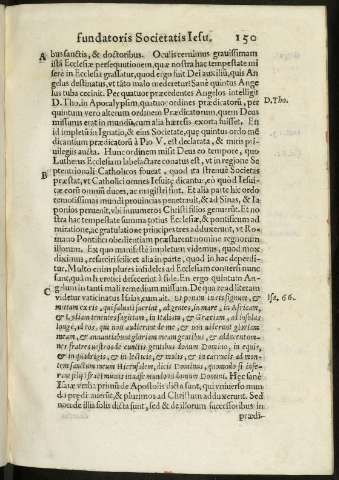 fundatoris Societatis Iesu.
150
A bus sanctis, & doctoribus. Oculis cernimus grauissimam
istã Ecclesiæ persequutionem, quæ nostra hac tempestate mi
serè in Ecclesia grassatur, quod ergo fuit Dei auxiliũ, quis An
gelus destinatus, vt tãto malo mederetur? Sanè quintus Ange
lus tuba cecinit. Per quatuor præcedentes Angelos intelligit
D. Tho. in Apocalypsim, quatuor ordines prædicatorũ, per
D. Tho.
quintum vero alterum ordinem Prædicatorum, quem Deus
missurus erat in mundũ, cum alia hæresis exorta fuisset. En
id impletũ in Ignatio, & eius Societate, quæ quintus ordo mẽ
dicantium prædicatorũ à Pio V. est declarata, & miris pri-
uilegiis aucta. Hunc ordinem misit Deus eo tempore, quo
Lutherus Ecclesiam labefactare conatus est, vt in regione Se
B ptentionali Catholicos foueat, quod ita strenuè Societas
præstat, vt Catholici omnes Iesuitæ dicantur, eò quod Iesui-
tæ eorũ omniũ duces, ac magistri sint. Et alia parte hic ordo
remotissimas mundi prouincias penetrauit, & ad Sinas, & Ia
ponios peruenit, vbi innumeros Christi filios genuerũt. Et no
stra hac tempestate summa totius Ecclesiæ, & pontificum ad
miratione, ac gratulatione principes tres adduxerunt, vt Ro-
mano Pontifici obedientiam præstarent nomine regionum
illorum. Ex quo manifestè impletum videmus, quod mox
diximus, resarciri scilicet alia in parte, quod in hac deperdi-
tur. Multo enim plures infideles ad Ecclesiam conuersi nunc
sunt, quàm hæretici discederẽt à fide. En ergo quintum An-
C gelum in tanti mali remedium missum. De qua re ad literam
videtur vaticinatus Isaias, cum ait. Et ponam in eis signum, &
Isa. 66.
mittam ex eis, qui saluati fuerint, ad gentes, in mare, in Africam,
& Lydiam tenentes sagittam, in Italiam, & Græciam, ad insulas
longè, ad eos, qui non audierunt de me, & non viderunt gloriam
meam, & annuntiabunt gloriam meam gentibus, & adducent om-
nes fratres vestros de cunctis gentibus donum Domino, in equis,
& in quadrigis, & in lecticis, & mulis, & in carrucis ad mon-
tem sanctum meum Hierusalem, dicit Dominus, quomodo si infe-
rant filij Israel munus in vase mundo in domum Domini. Hęc sanè
Isaiæ verba primũ de Apostolis dicta sunt, qui vniuerso mun
do prædicauerũt, & plurimos ad Christum adduxerunt. Sed
non de illis solis dicta sunt, sed & de illorum successoribus in
prædi-